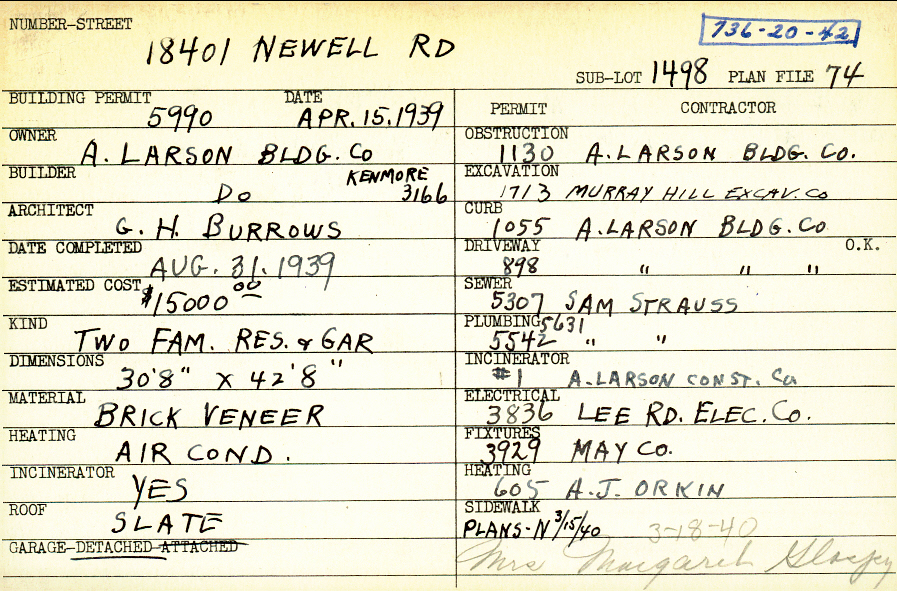 NUMBER-STREET
18401 NEWELL RD
736-20-42
SUB-LOT 1498 PLAN FILE 74
BUILDING PERMIT DATE
5990 APR. 15. 1939
OWNER
A. LARSON BLDG. Co
BUILDER
Do KENMORE 3166
ARCHITECT
G. H. BURROWS
DATE COMPLETED
AUG. 31. 1939
ESTIMATED COST
$15000 00
KIND
TWO FAM. RES. & GAR
DIMENSIONS
30'8" x 42'8"
MATERIAL
BRICK VENEER
HEATING
AIR COND.
INCINERATOR
YES
ROOF
SLATE
GARAGE-DETACHED-ATTACHED
PERMIT CONTRACTOR
OBSTRUCTION
1130 A. LARSON BLDG. Co.
EXCAVATION
1713 MURRAY HILL EXCAV. Co
CURB
1055 A. LARSON BLDG. Co
DRIVEWAY O.K.
898 " " "
SEWER
5307 SAM STRAUSS
PLUMBING 5631
5542 " "
INCINERATOR
#1 A. LARSON CONST. Co
ELECTRICAL
3836 LEE RD. ELEC. Co.
FIXTURES
3929 MAY Co.
HEATING
605 A.J. ORKIN
SIDEWALK
PLANS-N 3/15/40 3-18-40
Mrs Margaret